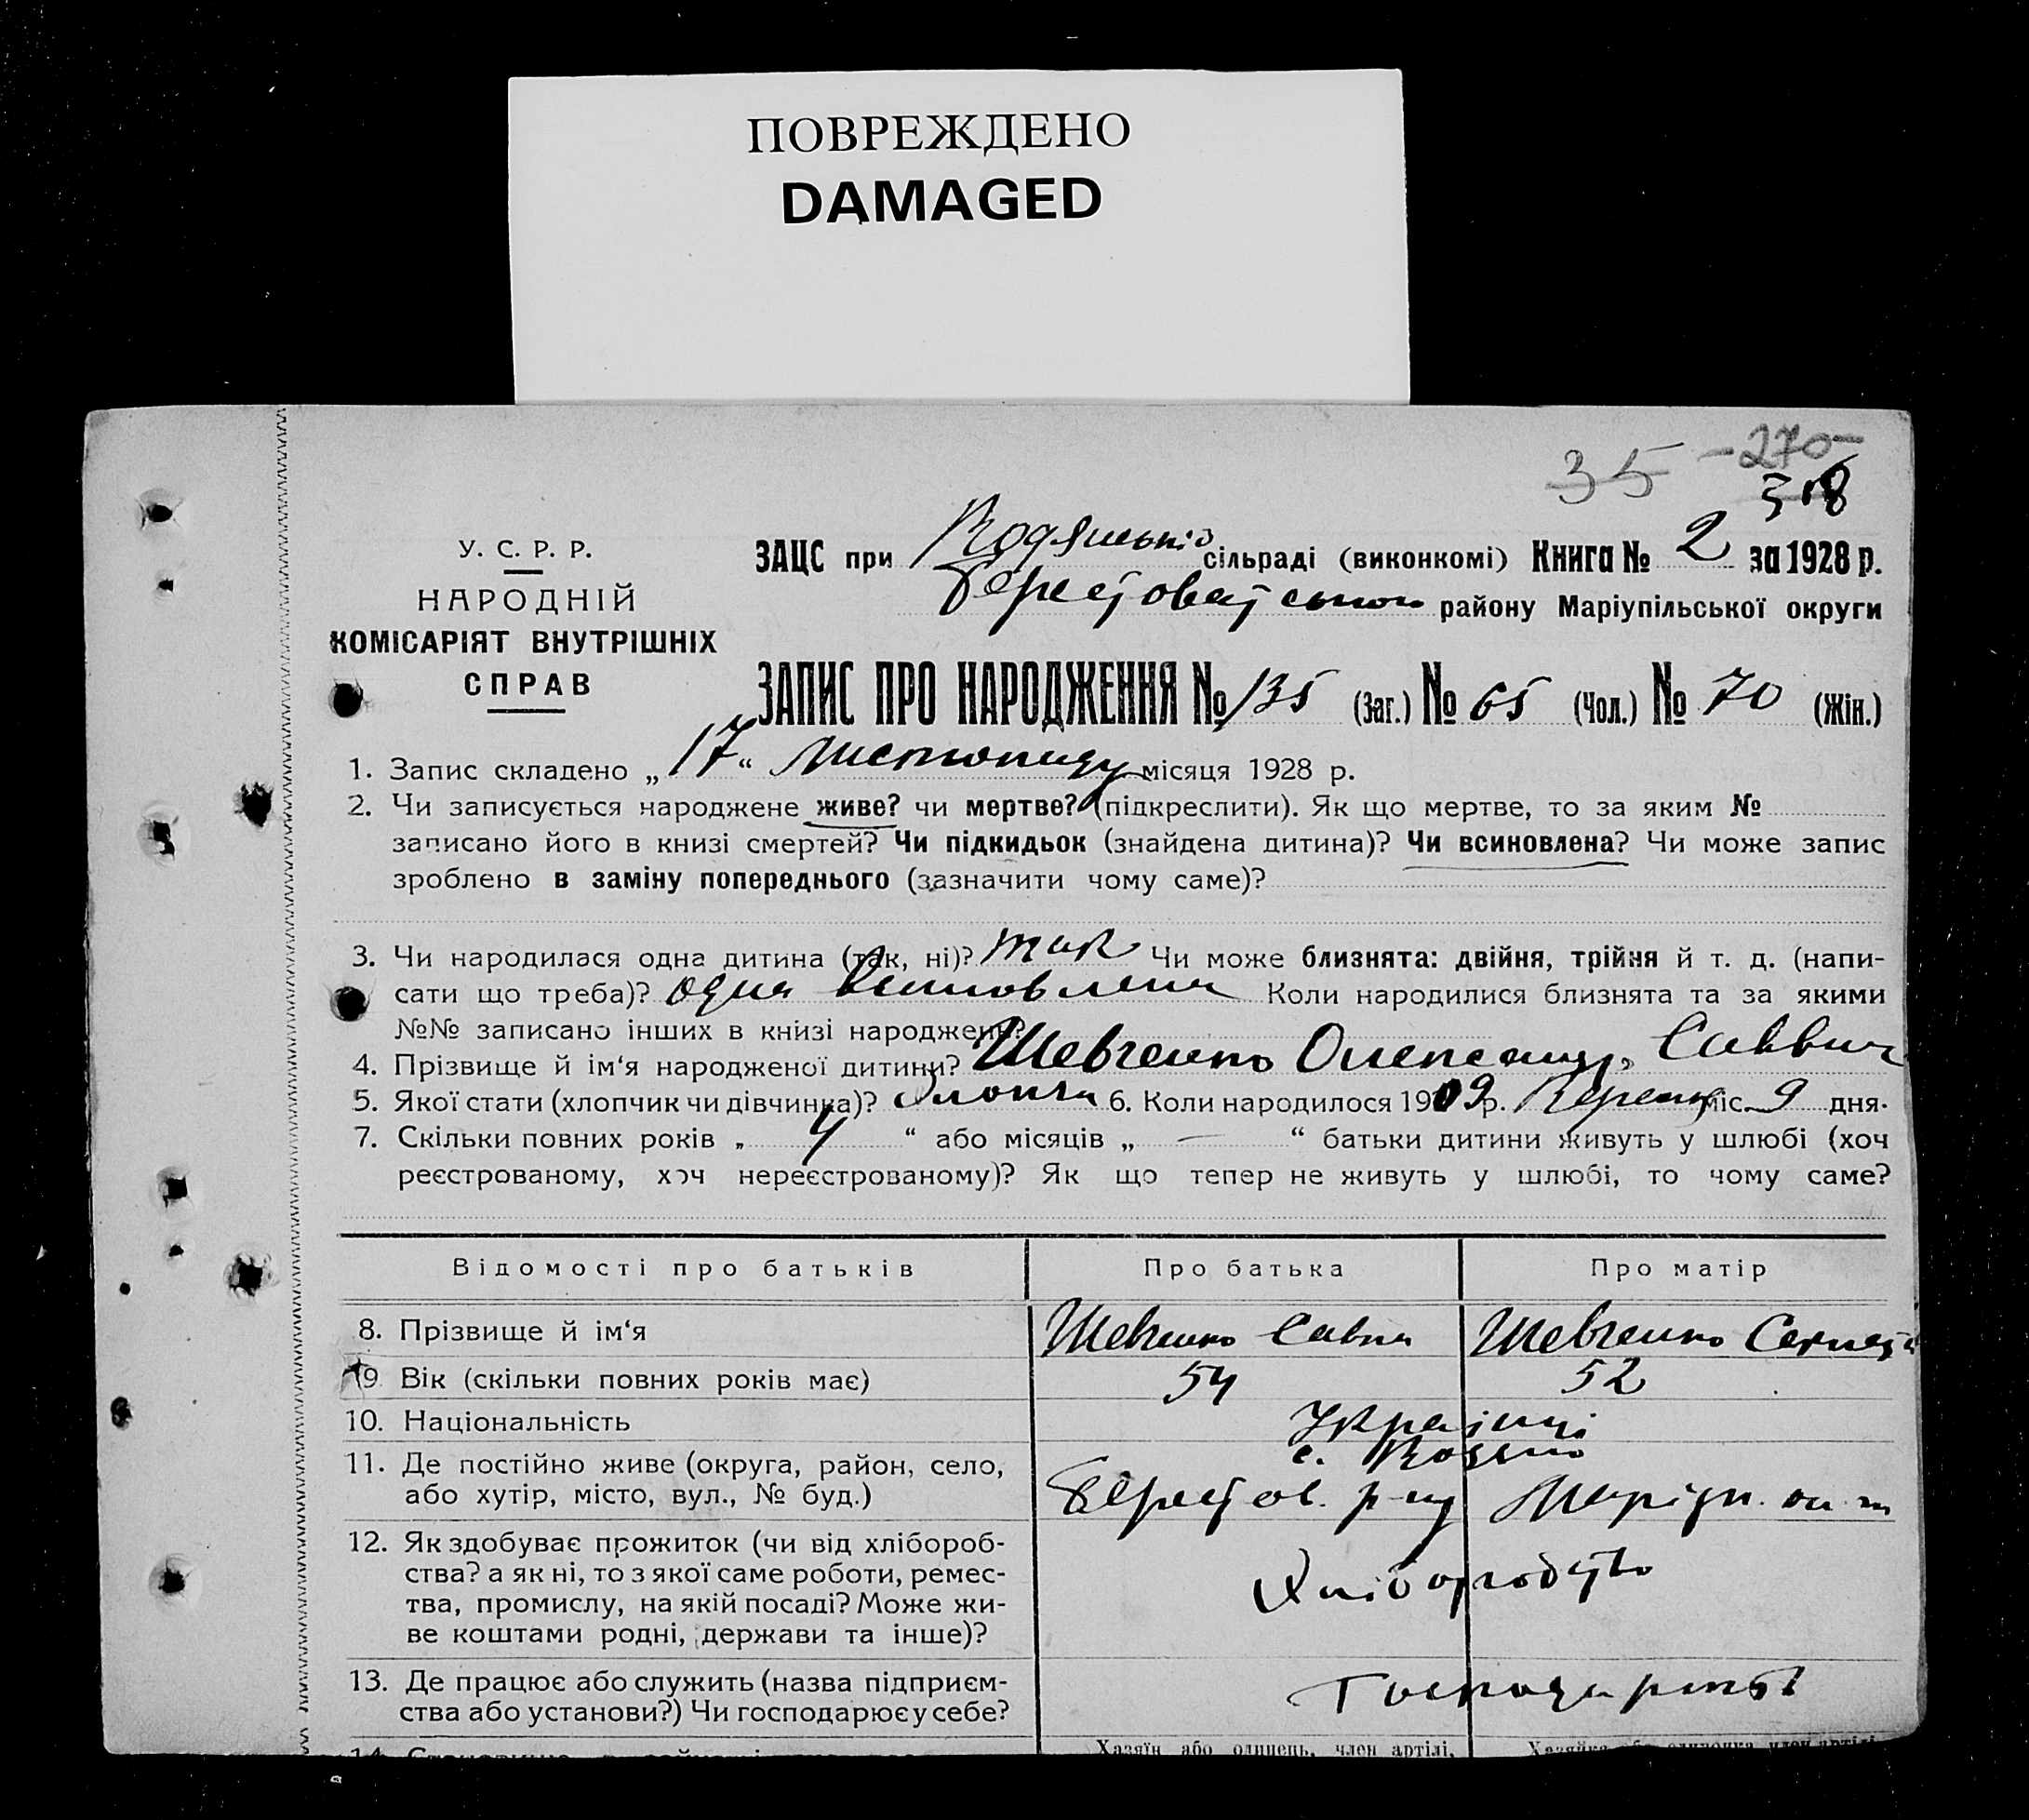 ПОВРЕЖДЕНО
DAMAGED
35 -270-
318
У. С. Р. Р.
НАРОДНІЙ
КОМІСАРІЯТ ВНУТРІШНІХ
СПРАВ
ЗАЦС при Водянській сільраді (виконкомі) Книга № 2 за 1928 р.
Берестоватського району Маріупільської округи
ЗАПИС ПРО НАРОДЖЕННЯ № 135 (Заг.) № 65 (Чол.) № 70 (Жін.)
1. Запис складено „ 17 “ Листопаду місяця 1928 р.
2. Чи записується народжене живе? чи мертве? (підкреслити). Як що мертве, то за яким №
записано його в книзі смертей? Чи підкидьок (знайдена дитина)? Чи всиновлена? Чи може запис
зроблено в заміну попереднього (зазначити чому саме)?
3. Чи народилася одна дитина (так, ні)? так Чи може близнята: двійня, трійня й т. д. (напи-
сати що треба)? одна Всиновлена Коли народилися близнята та за якими
№№ записано інших в книзі народжень?
4. Прізвище й ім‘я народженої дитини? Шевченко Олександр Саввич
5. Якої стати (хлопчик чи дівчинка)? Хлопчи 6. Коли народилося 1909 р. міс. 9 дня.
7. Скільки повних років „ 4 “ або місяців „ — “ батьки дитини живуть у шлюбі (хоч
реєстрованому, хоч нереєстрованому)? Як що тепер не живуть у шлюбі, то чому саме?
Відомості про батьків Про батька Про матір
8. Прізвище й ім‘я Шевченко Савка Шевченко
9 Вік (скільки повних років має) 54 52
10. Національність Українці
11. Де постійно живе (округа, район, село, с. Водяно
або хутір, місто, вул., № буд.) Берестов. р-ну Маріуп. ок-ги
12. Як здобуває прожиток (чи від хлібороб-
ства? а як ні, то з якої саме роботи, ремес- Хліборобство
тва, промислу, на якій посаді? Може жи-
ве коштами родні, держави та інше)?
13. Де працює або служить (назва підприєм-
ства або установи?) Чи господарює у себе?
Хазяїн або одинець, член артілі,